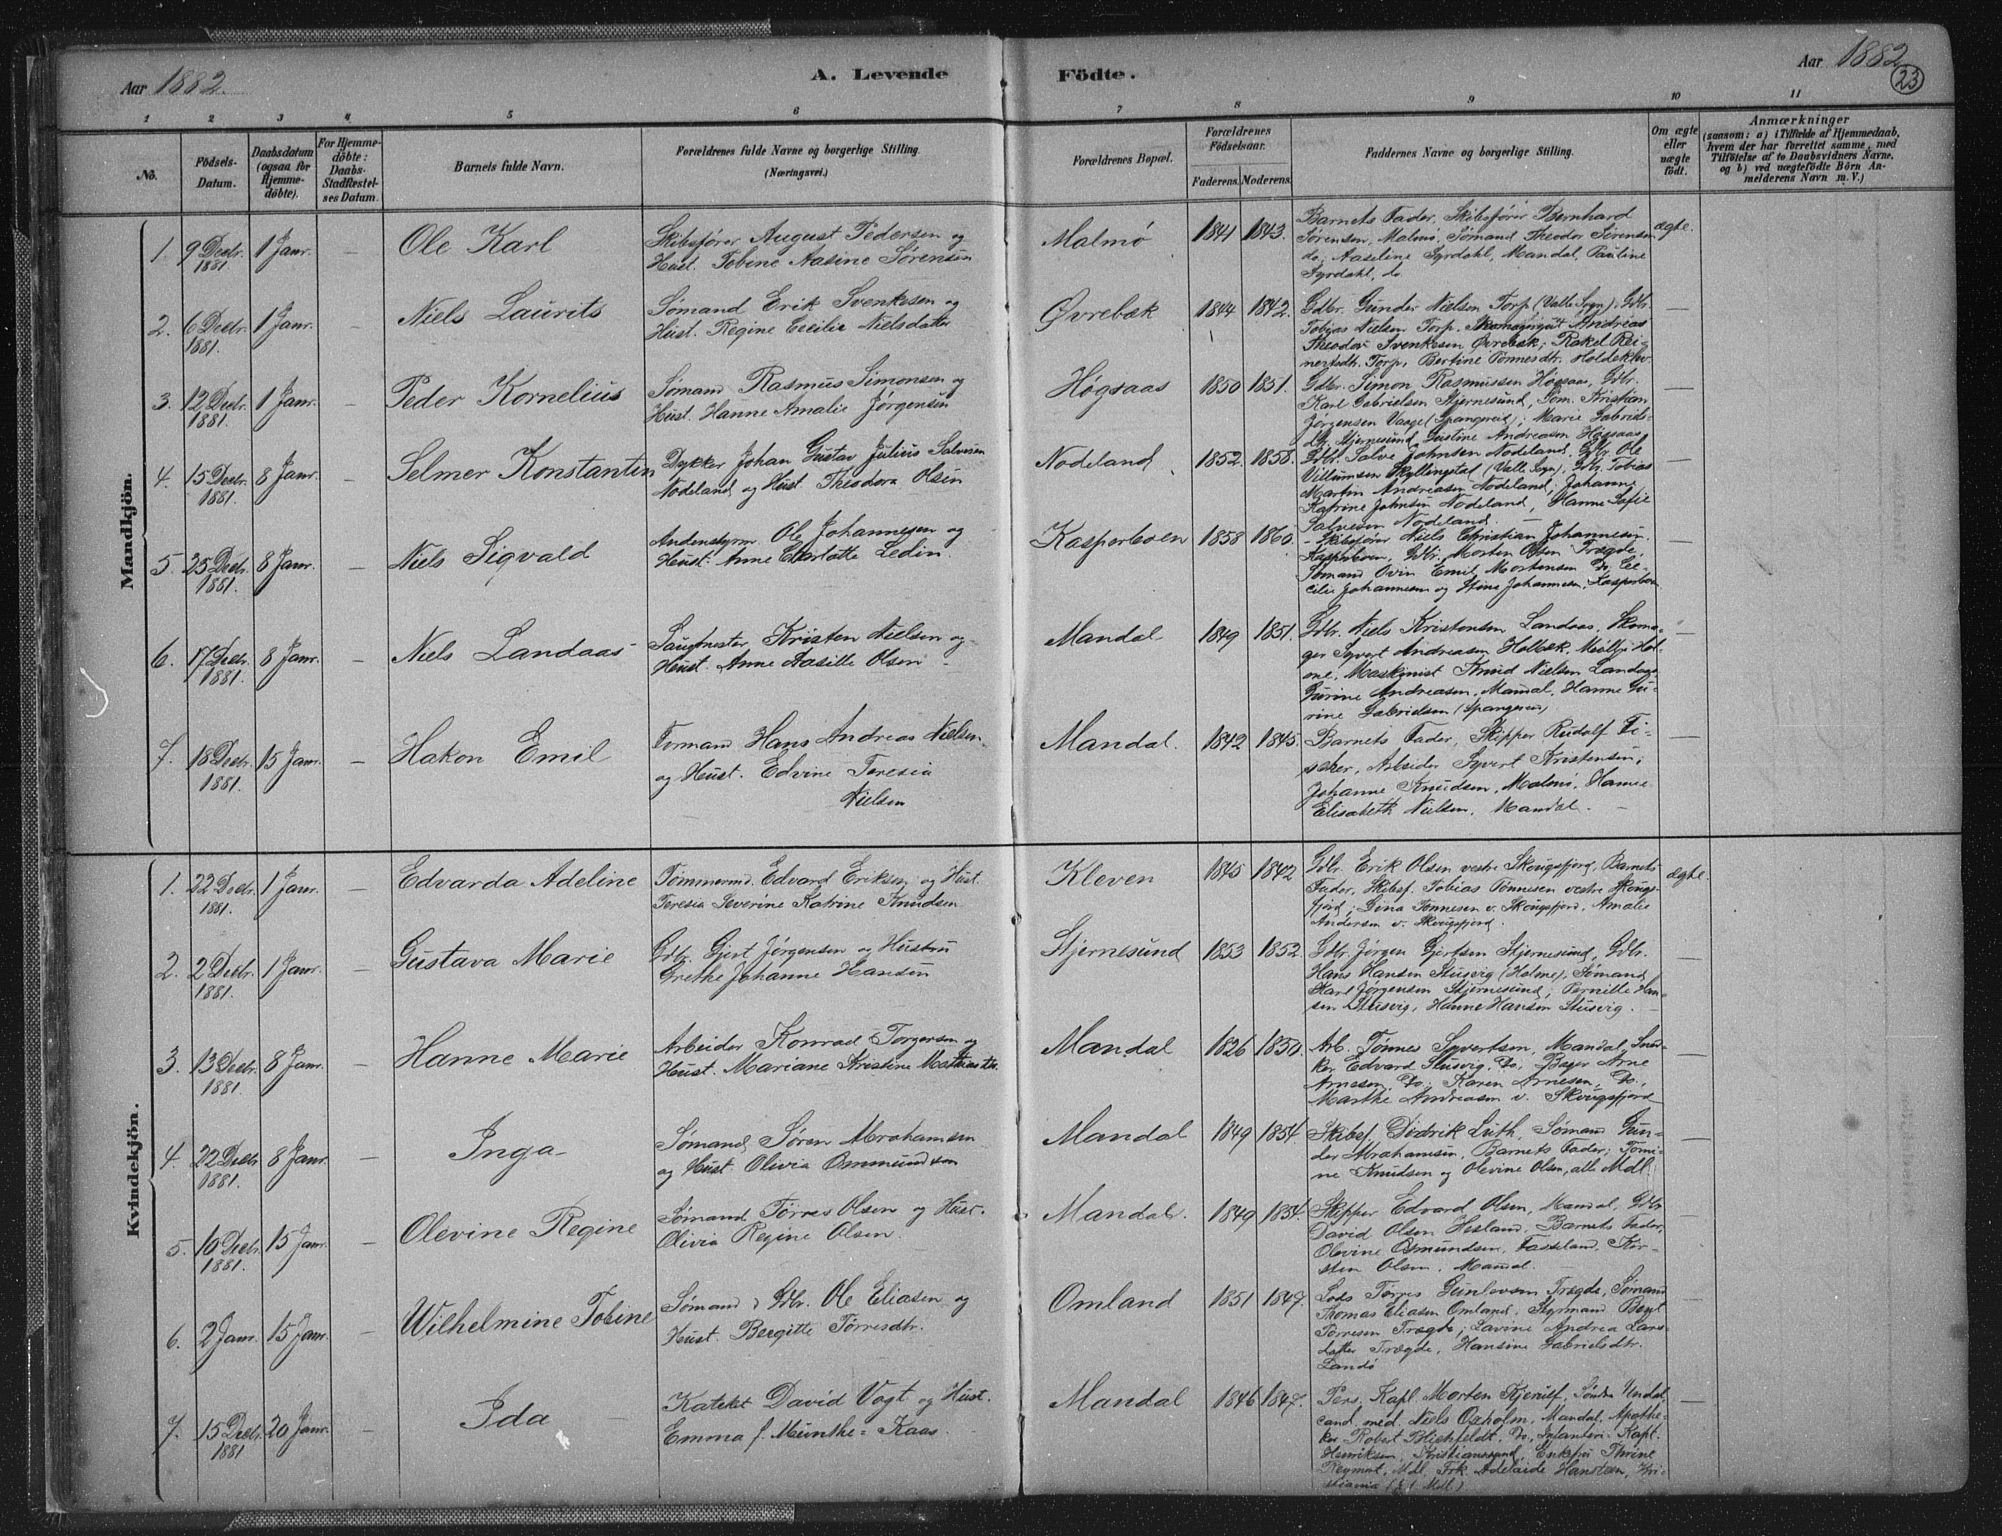 Aar 1882.
A. Levende Födte.
Aar 1882
23
1 2 3 4 5 6 7 8 9 10 11
No.
Födsels-Datum.
Daabsdatum (ogsaa for Hjemmedöbte).
For Hjemmedöbte: Daabs-Stadfæstelses Datum.
Barnets fulde Navn.
Forældrenes fulde Navne og borgerlige Stilling. (Næringsvei.)
Forældrenes Bopæl.
Forældrenes Födselsaar.
Faderens. Moderens.
Faddernes Navne og borgerlige Stilling.
Om ægte eller uægte födt.
Anmærkninger
(saasom: a) i Tilfælde af Hjemmedaab, hvem der har forrettet samme, med Tilföielse af to Daabsvidners Navne, og b) ved uægtefödte Börn Anmelderens Navn m. V.)
Mandkjön.
1. 9 Decbr. 1881. 1 Janr. — Ole Karl
Skibsfører August Pedersen og
Hust. Tobine Aasine Sørensen
Malmø 1841 1843.
Barnets Fader, Skibsfører Bernhard
Sørensen, Malmø, Sømand Theodor Sørensen
do; Aaseline Syrdahl, Mandal, Pauline
Syrdahl, do
ægte.
2. 6 Decbr. 1881. 1 Janr. — Niels Laurits
Sømand Erik Svenkesen og
Hust. Regine Cecilie Nielsdatter
Øvrebæk 1844 1842.
Gdbr. Gunder Nielsen Torp (Valle Sogn), Gdbr.
Tobias Nielsen Torp, Andreas
Theodor Svenkesen Øvrebæk; Rakel Rei-
nertsdtr. Torp, Bertine Tønnesdtr.
—
3. 12 Decbr. 1881. 1 Janr. — Peder Kornelius
Sømand Rasmus Simonsen og
Hust. Hanne Amalie Jørgensen
Høgsaas 1850 1851.
Gdbr. Simon Rasmussen Høgsaas, Gdbr.
Karl Gabrielsen Stjernesund, Søm. Kristian
Jørgensen Vaage (Spangereid); Marie Gabriels-
dtr. Stjernesund, Gustine Andreasen Høgsaas
—
4. 15 Decbr. 1881. 8 Janr. — Selmer Konstantin
Dykker Johan Gustav Julius Salvesen
Nodeland og Hust Theodora Olsen
Nodeland 1852. 1858.
Gdbr. Salve Johnsen Nodeland, Gdbr. Ole
Villumsen Skyllingstad (Valle Sogn), Gdbr. Tobias
Martin Andreasen Nodeland; Johanne
Katrine Johnsen Nodeland, Hanne Sofie
Salvesen Nodeland
—
5. 25 Decbr. 1881. 8 Janr. — Niels Sigvald
Andenstyrm. Ole Johannesen og
Hust. Anne Charlotte Ledin.
Kasperboen 1858 1860.
Skibsfører Niels Christian Johannesen
Kasperboen, Gdbr. Morten Olsen Trægde,
Sømand Ovin Emil Mortensen Do; Ce-
cilie Johannesen og Stine Johannesen, Kasperboen
—
6. 17 Decbr. 1881. 8 Janr. — Niels Landaas
Saugmester Kristen Nielsen og
Hust. Anne Aasille Olsen
Mandal 1849 1851.
Gdbr. Niels Kristensen Landaas, Skoma-
ger Syvert Andreasen Holbæk, Molly Hol-
me, Maskinist Knud Nielsen Landaas
Gurine Andreasen, Mandal, Hanne Gu-
rine Gabrielsen (Spangereid)
—
7. 18 Decbr. 1881. 15 Janr. — Hakon Emil
Formand Hans Andreas Nielsen
og Hust. Edvine Teresia
Nielsen
Mandal. 1842 1845.
Barnets Fader, Skipper Rudolf Fi-
scher, Arbeider Syvert Kristensen;
Johanne Knudsen, Malmø, Hanne
Elisabeth Nielsen, Mandal.
—
Kvindekjön.
1. 22 Decbr. 1881. 1 Janr. — Edvarda Adeline
Tømmermd. Edvard Eriksen og Hust.
Teresia Severine Katrine Knudsen
Kleven 1845 1842
Gdbr. Erik Olsen vestre Skougsfjord, Barnets
Fader, Skibsf. Tobias Tønnesen vestre Skougs-
fjord; Gina Tønnesen v. Skougsfjord, Amalie
Andersen v. Skougsfjord.
ægte.
2. 2 Decbr. 1881. 1 Janr. — Gustava Marie
Gdbr. Gjert Jørgensen og Hustru
Grethe Johanne Hansen
Stjernesund 1853 1852.
Gdbr. Jørgen Gjertsen Stjernesund, Gdbr.
Hans Hansen Stusvig (Holme), Sømand
Karl Jørgensen Stjernesund; Pernille Han-
sen Stusvig, Hanne Hansen Stusvig.
—
3. 13 Decbr. 1881. 8 Janr. — Hanne Marie
Arbeider Konrad Torgersen og
Hust. Mariane Kristine Mathiasdtr.
Mandal 1826 1850.
Arb. Tønnes Syvertsen, Mandal, Sned-
ker Edvard Stusvig, Do, Bager Arne
Arnesen, Do; Karen Arnesen, Do,
Marthe Andreasen v. Skougsfjord
—
4. 22 Decbr. 1881. 8 Janr. — Inga
Sømand Søren Abrahamsen
og Hust. Olivia Ommundsen
Mandal 1849 1854.
Skibsf. Didrik Luth, Sømand Gun-
der Abrahamsen, Barnets Fader; Tomi-
ne Knudsen og Olevine Olsen, alle Mdl.
—
5. 10 Decbr. 1881. 15 Janr. — Olevine Regine
Sømand Tørres Olsen og Hust.
Olivia Regine Olsen.
Mandal. 1849 1854.
Skipper Edvard Olsen, Mandal, Gdbr
David Olsen Hesland, Barnets Fader,
Olevine Osmundsen, Fasseland, Kir-
sten Olsen, Mandal.
—
6. 2 Janr. 15 Janr. — Wilhelmine Tobine
Sømand & Gdbr. Ole Eliasen og
Hust. Bergitte Tørresdtr.
Omland 1851 1847.
Lods Tørres Gunlovsen Trægde, Sømand
Thomas Eliasen Omland, Styrmand Bent
Tørresen Trægde; Lavine Andrea Lars-
datter Trægde, Hansine Gabrielsdtr.
Landø
—
7. 15 Decbr. 1881 20 Janr. Ida
Kateket David Vogt og Hust.
Emma f. Munthe-Kaas.
Mandal 1846 1847.
Pers. Kapl. Morten Kjerulf, Søndre Undal
cand. med. Niels Oxholm, Mandal, Apothe-
ker Robert Do, Infanteri-Kapt.
Henriksen, Kristianssund, Enkefru Thrine
Mdl. Frk. Adelaide Hansteen, Kri-
stiania
—